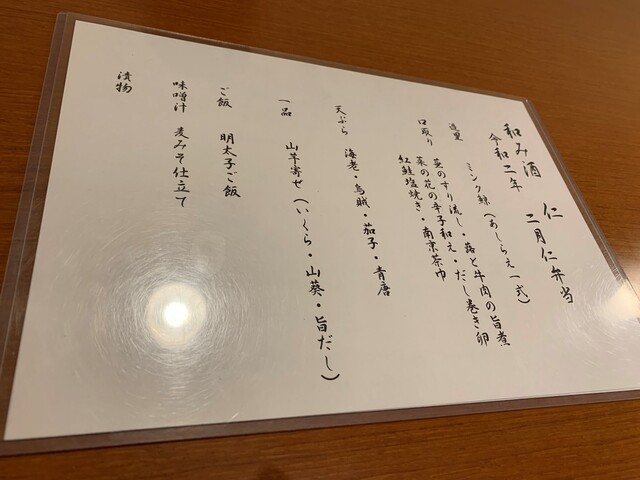 和み酒 仁
令和二年 二月仁弁当
造里 ミンク鯨(あしらえ一式)
口取り 菜のすり流し・蕗と牛肉の旨煮
菜の花の辛子和え・だし巻き卵
紅鮭塩焼き・南京茶巾
天ぷら 海老・烏賊・茄子・青唐
一品 山芋寄せ(いくら・山葵・旨だし)
ご飯 明太子ご飯
味噌汁 麦みそ仕立て
漬物